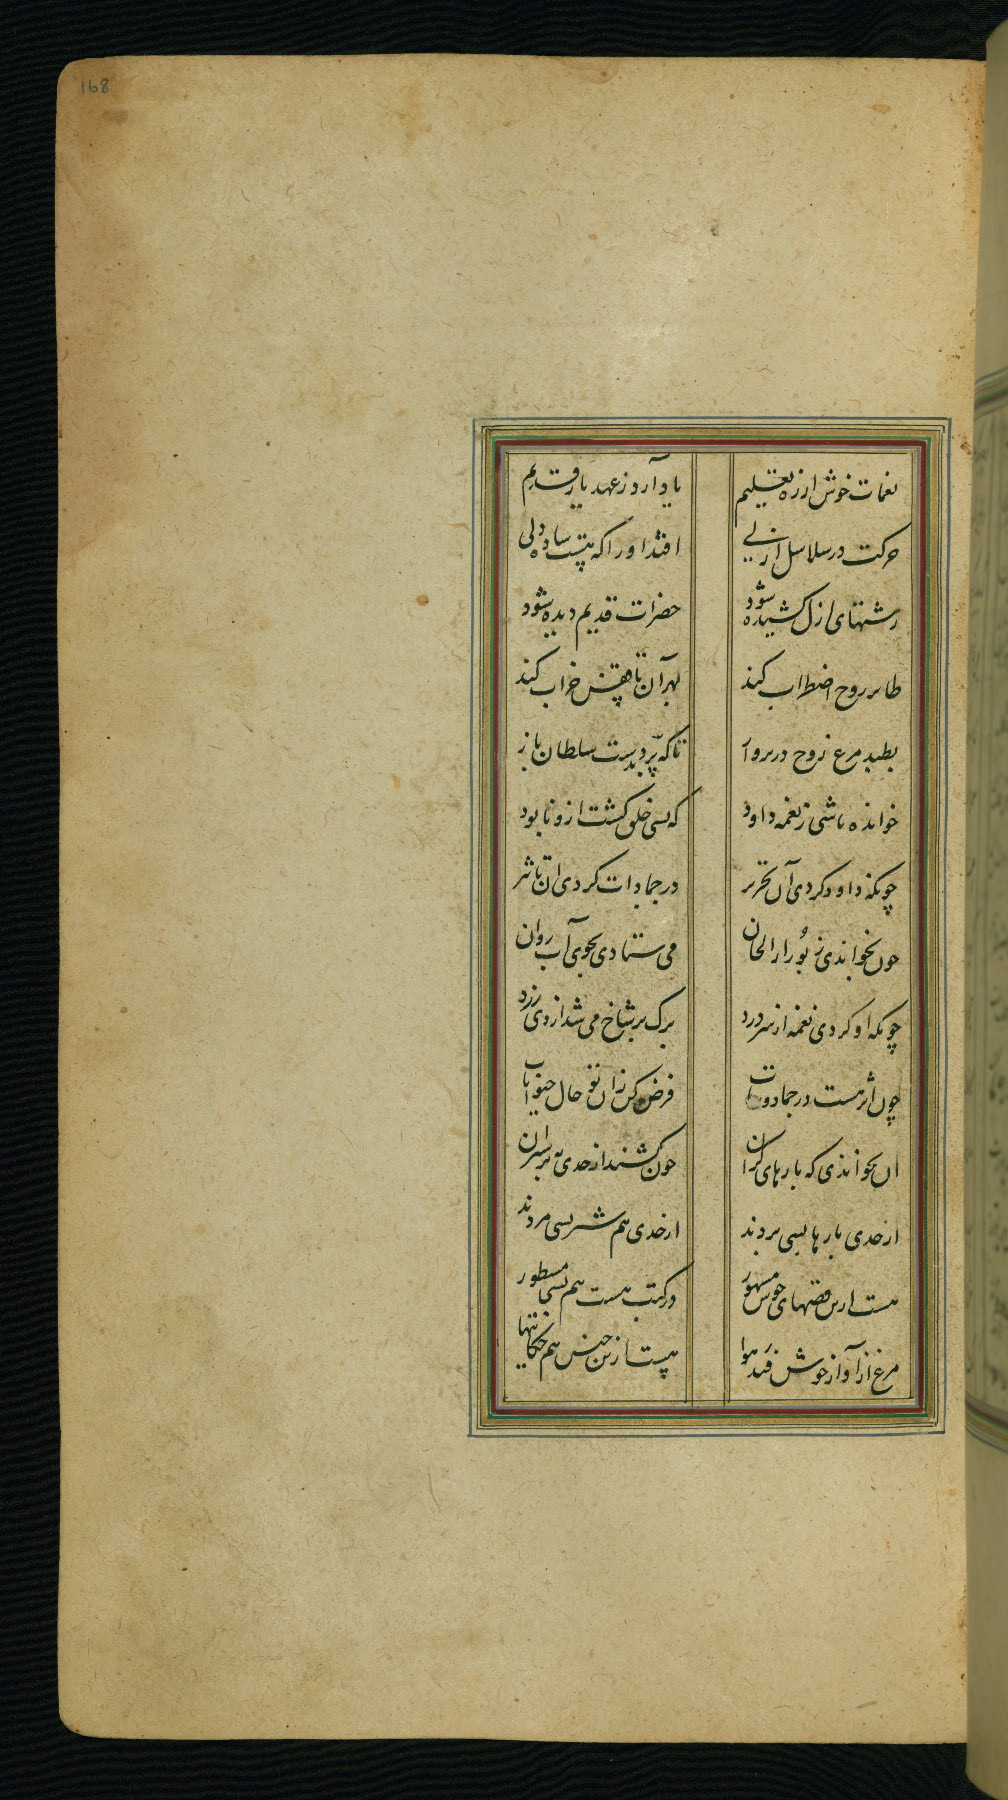 168
نغمات خوش از ره تعلیم یاد آرد ز عهد یار قدیم
حرکت در سلاسل ازلی افتد او را که نیست ساده دلی
رشتهای ازل کشیده شود حضرات قدیم دیده شود
طایر روح اضطراب کند بهر آن تا قفس خراب کند
بطپد مرغ روح در پرواز تا که پرد بدست سلطان باز
خوانده باشی ز نغمه داود که بسی خلق کشت ازو نابود
چونکه داود کردی آن تحریر در جمادات کردی آن تاثیر
چون بخواندی زبور را الحان می ستادی بجوی آب روان
چونکه او کردی نغمه از سر درد برک بر شاخ می شد از وی زرد
چون اثر هست در جماد و نبات فرض کن زان تو حال حیوانات
آن بخواندی که بارهای کران چون کشند از حدی
از حدی بارها بسی بردند از حدی هم شتر بسی مردند
هست ازین قصهای خوش مشهور در کتب هست هم بسی مسطور
مرغ از آواز خوش فتد ز هوا هست ازین جنس هم حکایتها